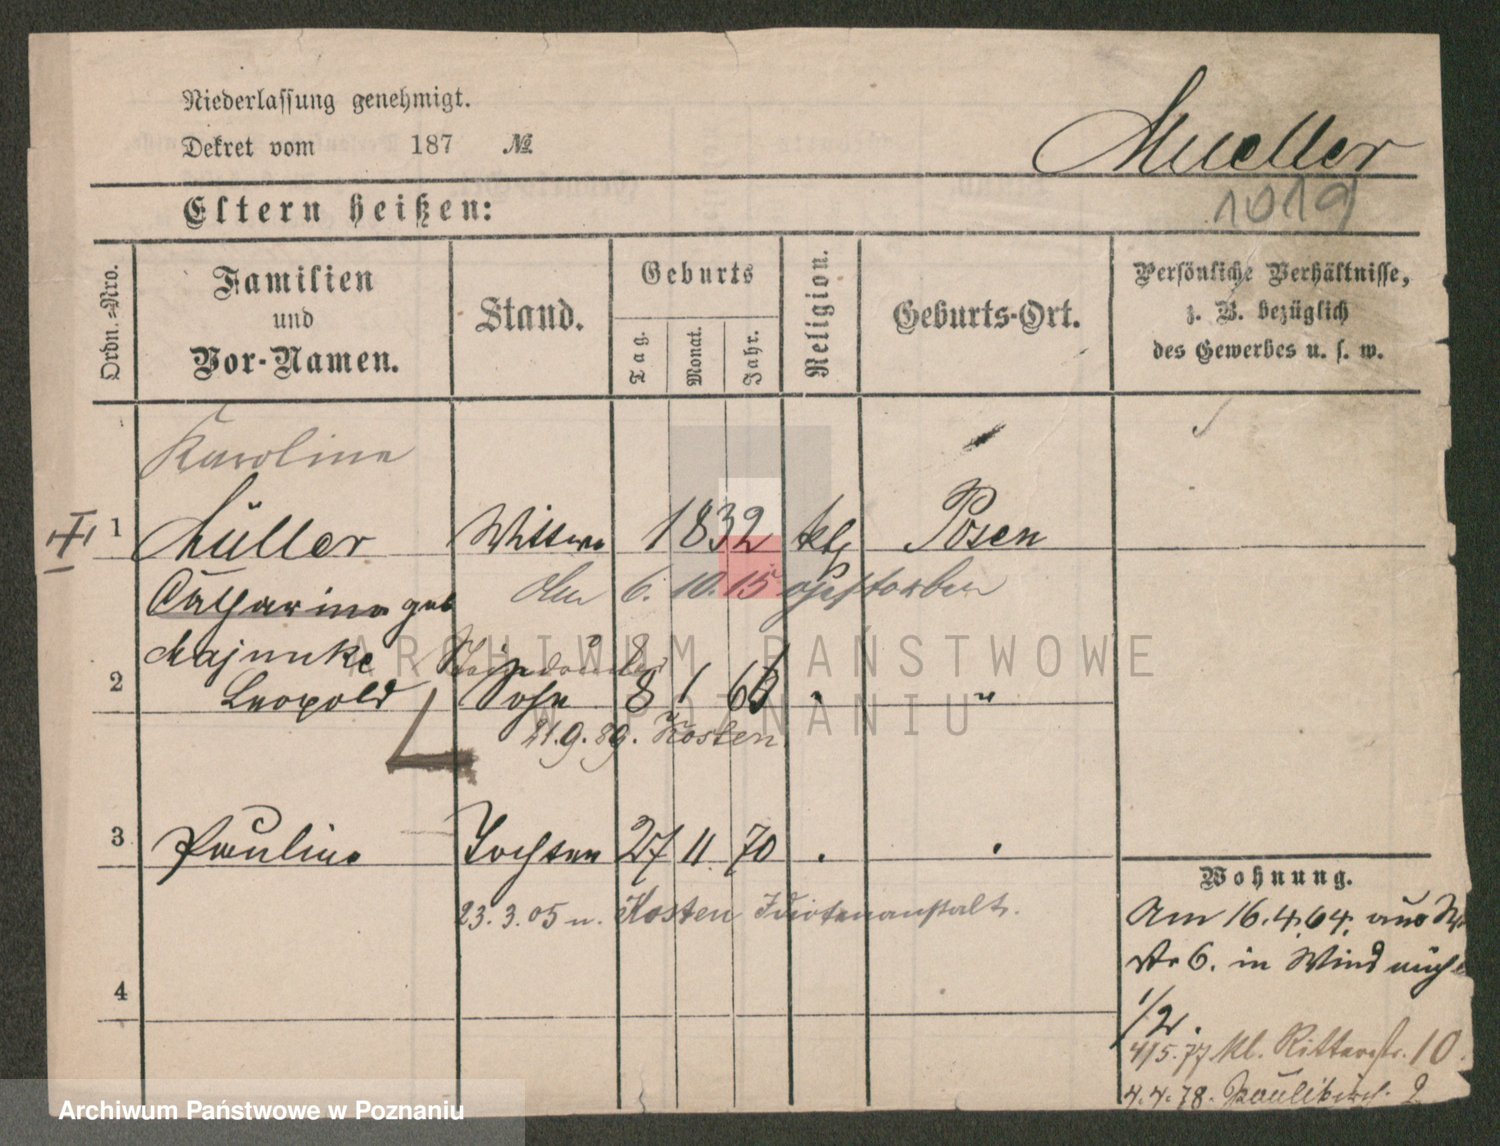 Niederlassung genehmigt.
Dekret vom 187 №
Mueller
1019
Eltern heißen:
Ordn.-Nro.
Familien
und
Vor-Namen.
Stand.
Geburts
Tag.
Monat.
Jahr.
Religion.
Geburts-Ort.
Persönliche Verhältnisse,
z. B. bezüglich
des Gewerbes u. s. w.
Karoline
1 Müller Wittwe 1832 ktl Posen
Catharina geb
den 6. 10. 15 gestorben
Majunke
2 Leopold Sohn 8 1 "
21.9.89. n Kosten
3 Pauline Tochter 27 11 70 . .
23.3.05 n. Kosten Idiotenanstalt.
4
Wohnung.
Am 16.4.64. aus
6. in
1/2.
4/5.77 kl. Ritterstr. 10.
4.4.78. Paulikirch. 2
ARCHIWUM PAŃSTWOWE
W POZNANIU
Archiwum Państwowe w Poznaniu